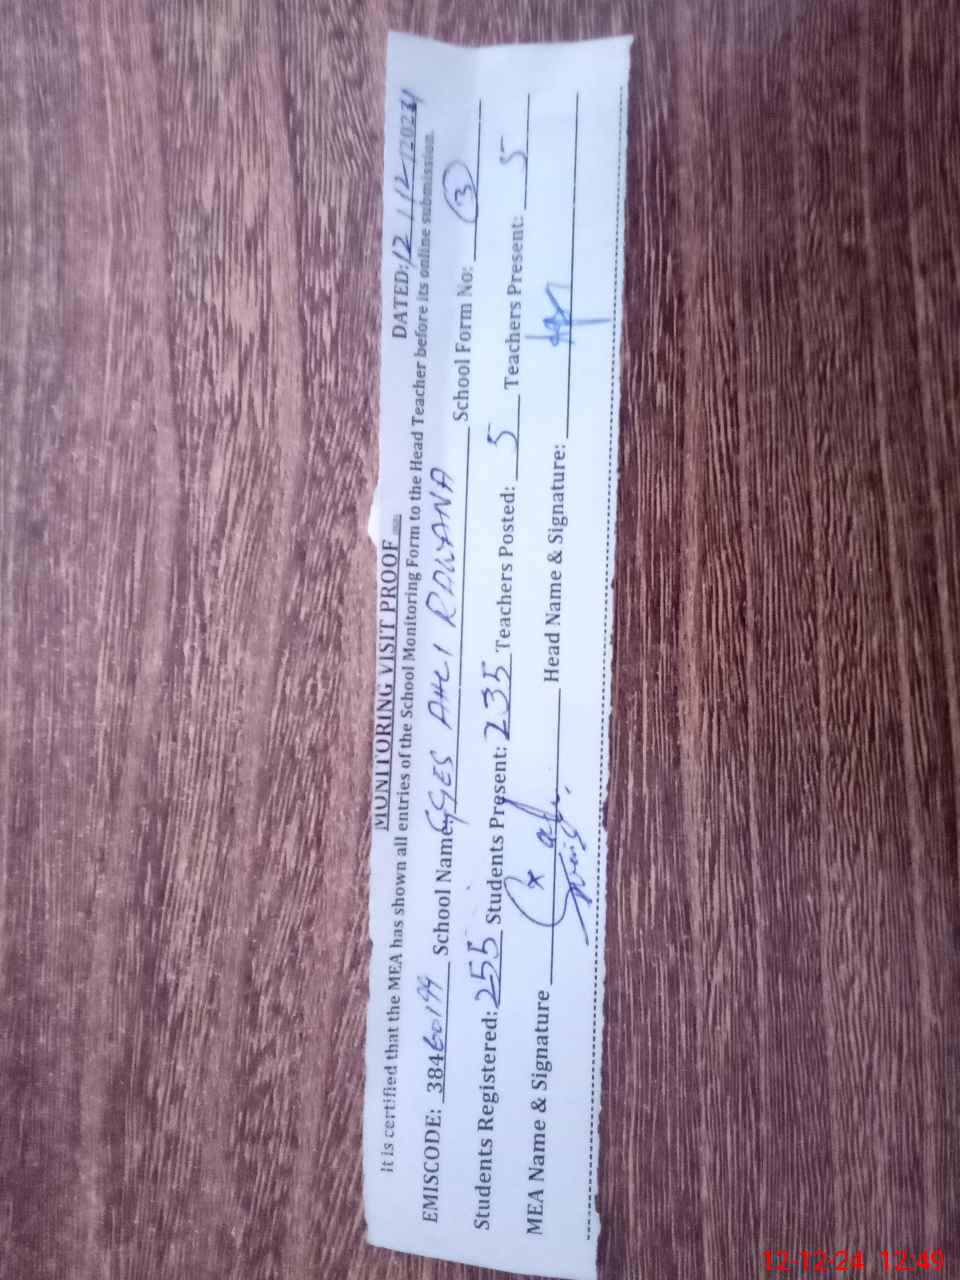 MONITORING VISIT PROOF
DATED: 12/12/2024
It is certified that the MEA has shown all entries of the School Monitoring Form to the Head Teacher before its online submission.
EMISCODE: 38460199 School Name: GGES AHLI RAWANA School Form No: 3
Students Registered: 255 Students Present: 235 Teachers Posted: 5 Teachers Present: 5
MEA Name & Signature Head Name & Signature:
12-12-24 12:49